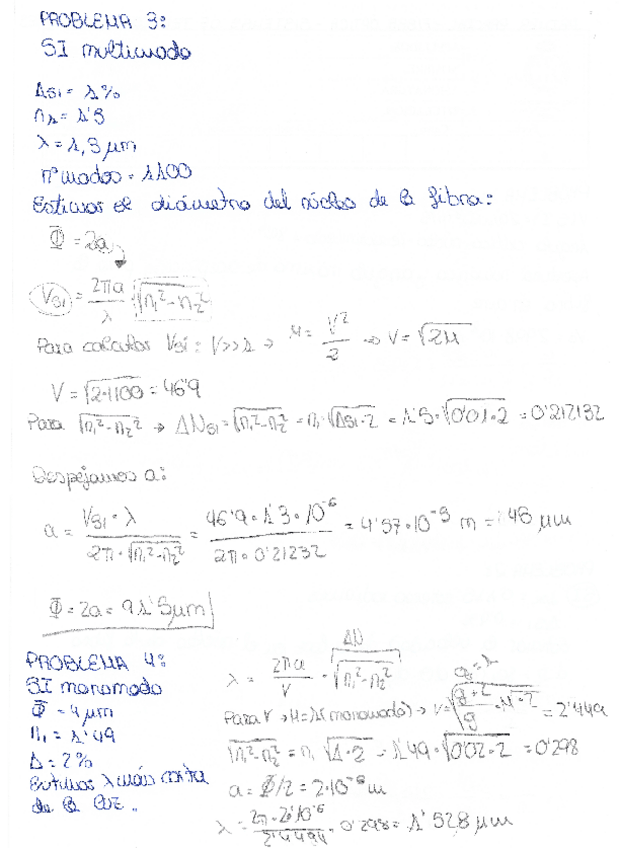 PROBLEMA 3:
SI multimodo
ΔSI = 1%
n1 = 1'5
λ = 1,3 μm
nº modos = 1100
Estimar el diámetro del núcleo de la fibra:
Φ = 2a
VSI = 2πa/λ · √(n1² - n2²)
Para calcular VSI: V>>1 → M = V²/2 → V = √2M
V = √2·1100 = 46'9
Para √(n1² - n2²) → ΔNSI = √(n1² - n2²) = n1·√(ΔSI·2) = 1'5·√(0'01·2) = 0'212132
Despejamos a:
a = VSI·λ / 2π·√(n1² - n2²) = 46'9·1'3·10⁻⁶ / 2π·0'21232 = 4'57·10⁻⁵ m = 45 μm
Φ = 2a = 91'5 μm
PROBLEMA 4:
SI monomodo
Φ = 4 μm
n1 = 1'49
Δ = 2%
Estimar λ más corta
de la luz.
AN
λ = 2πa/V · √(n1² - n2²)
Para V → M=1 (monomodo) → V = √(g+2/g · M·2) = 2'449
√(n1² - n2²) = n1 √(Δ·2) = 1'49·√(0'02·2) = 0'298
a = Φ/2 = 2·10⁻⁶ m
λ = 2π·2·10⁻⁶/2'4494 · 0'298 = 1'528 μm